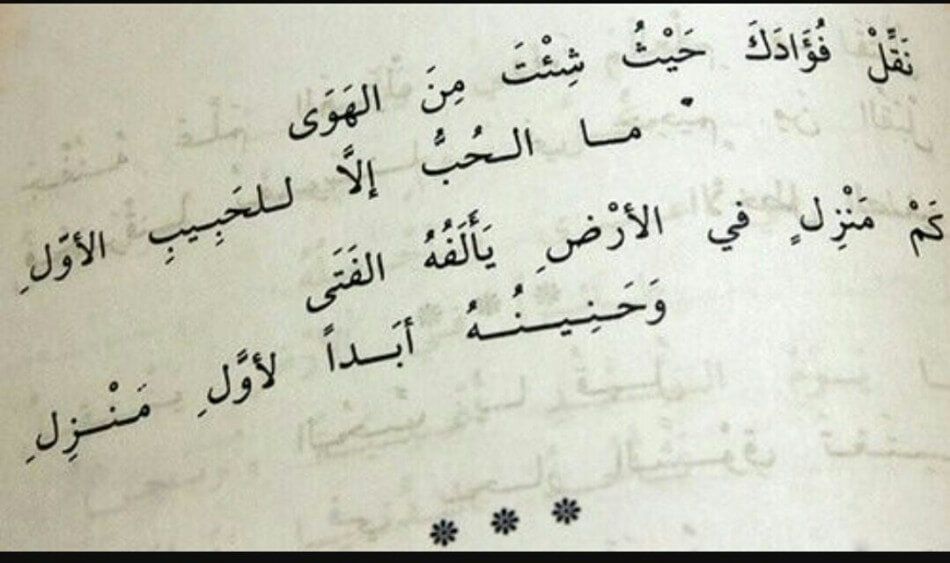 نَقِّلْ فُؤَادَكَ حَيْثُ شِئْتَ مِنَ الهَوَى
مــا الـحُبُّ إلَّا لـلحَبِـيبِ الأوّلِ
كَمْ مَنْزِلٍ في الأرْضِ يَأْلَفُهُ الفَتَى
وَحَـنِـيـنُـهُ أبَـداً لأوَّلِ مَـنْـزِلِ